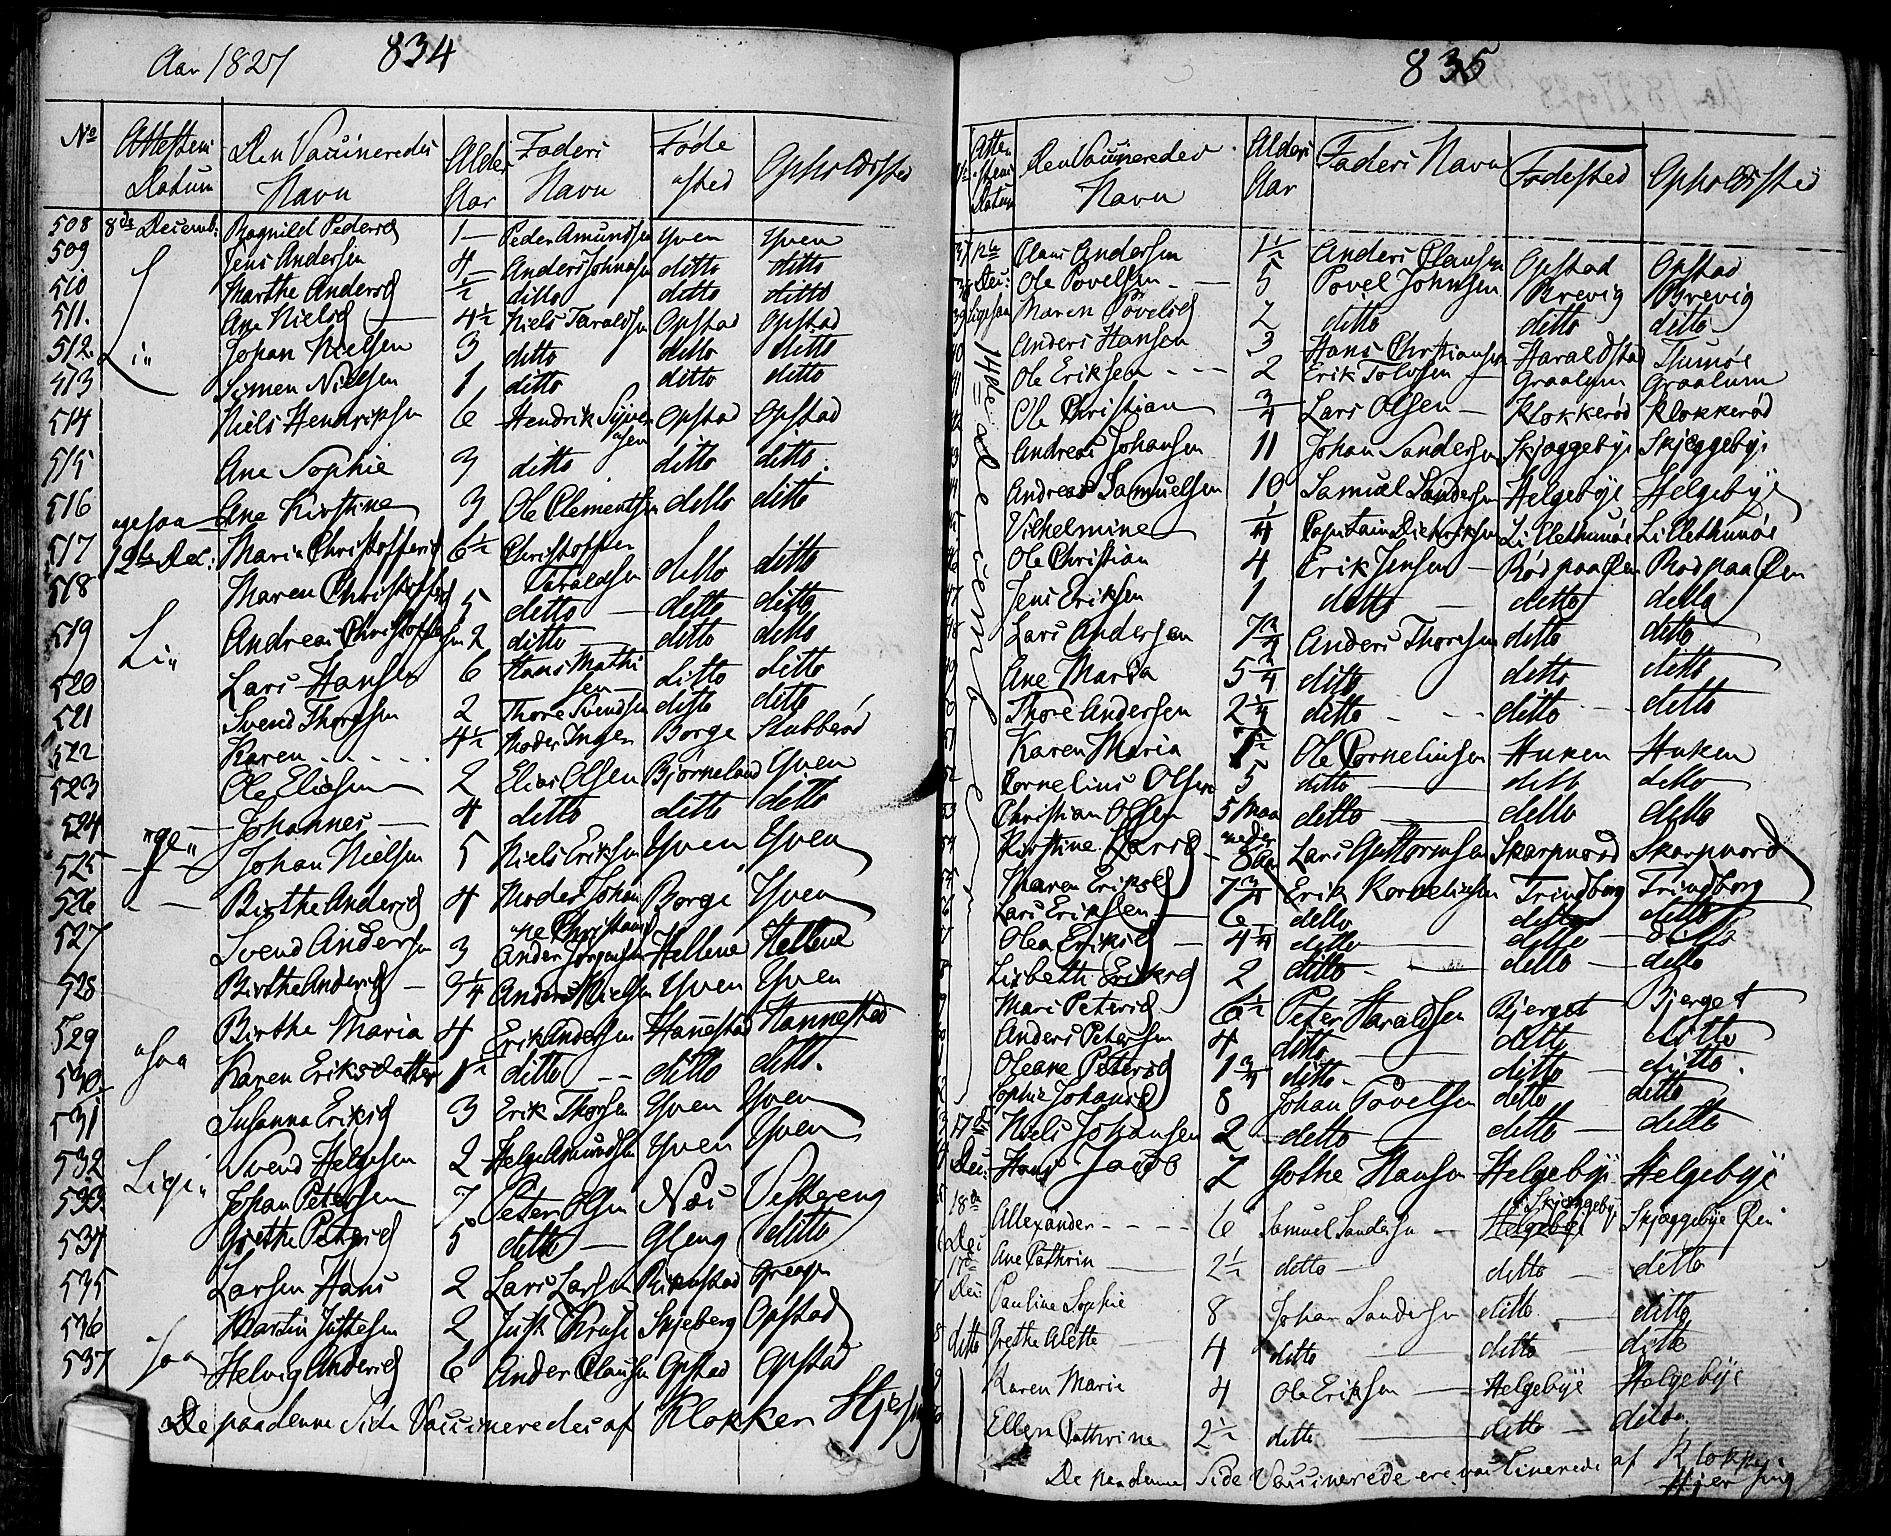 Aar 1827 834
No Attestens Datum Den Vaccineredes Navn Alder Aar Faders Navn Føde sted Opholdssted
508 8de Decemb: Ragnild Pedersd 1 — Peder Amundsen Yven Yven
509 Jens Andersen 4 Anders Johnsen ditto ditto
510 Marthe Andersd ½ ditto ditto ditto
511. Ane Nielsd — 4½ Niels Taraldsen Opstad Opstad
512. Li" Johan Nielsen 3 ditto ditto ditto
513 Simen Nielsen 1 ditto ditto ditto
514 Niels Hendriksen 6 Hendrik Syversen Opstad Opstad
515 Ane Sophie 3 ditto ditto ditto.
516 "gesaa Ane Kirstine 3 Ole Clementsen ditto ditto
517 12te Dec: Maria Christoffersd 6½ Christoffer Taraldsen ditto ditto
518 Maren Christoffersd 5 ditto — ditto ditto
519 Li" Andreas Christoffersen 2 ditto — ditto ditto
520 Lars Hansen 6 Hans Mathisen ditto ditto
521 Svend Thoresen 2 Thore Svendsen ditto ditto
522 Karen . . . . . 4½ Moder Inger Borge Stubberød
523 Ole Eliasen 2 Elias Olsen Bjørneland Yven
524 Johannes — 4 ditto ditto ditto
525 "ge" Johan Nielsen 5 Niels Eriksen Yven Yven
526 Birthe Andersd 4 Moder Johanne Christiansd Borge Yven
527 Svend Andersen 3 Anders Jørgensen Hellene Hellene
528 Birthe Andersd — 3¼ Anders Nielsen Yven Yven
529 Birthe Maria 4 Erik Andersen Hannestad Hannestad
530. "saa Karen Eriksdatter 1½ ditto — ditto ditto.
531 Susanna Eriksd 3 Erik Thorsen Yven Yven
532 Ligi" Svend Helgesen 2 Helge Amundsen Yven Yven
533. Johan Petersen 7 Peter Olsen Næs Vestgreng
534 Grethe Petersd 5 ditto — Gleng ditto
535 Larsen Hans 2 Lars Larsen
536 Martin Justesen 2 Just Kruse Skjeberg Opstad
537 saa Helvig Andersd 6 Anders Clausen Opstad Opstad
De paa denne Side Vaccineredes af Klokker Hjersing
835
Attestens Datum Den Vaccineredes Navn Alders Aar Faders Navn Fødested Opholdssted
37 12te Claus Andersen 1½ Anders Clausen Opstad Opstad
38 Dec: Ole Povelsen — 5 Povel Johnsen Brevig Brevig
39 ligesaa Maren Povelsd 2 ditto ditto ditto
40 14de Decemb Anders Hansen 3 Hans Christiansen Haraldstad Thunøe
41 Ole Eriksen - - - 2 Erik Tolvsen Graalum Graalum
42 Ole Christian ¾ Lars Olsen — Klokkerød Klokkerød
43 Andreas Johansen 11 Johan Sandersen Skjæggebye Skjæggebye
44 Andreas Samuelsen 10 Samuel Sandersen Helgebye Helgebye
45 Vilhelmine ¼ Capitain Diedriksen Lillethunøe Lillethunøe
46 Ole Christian 4 Erik Jensen — Rød paa Øen Rød paa Øen
47 Jens Eriksen 1 ditto — ditto ditto
48 Lars Andersen 7¾ Anders Thoresen ditto ditto
49 Ane Maria 5¼ ditto ditto ditto
50 Thore Andersen 2¼ ditto - - - ditto - - ditto
51 Karen Maria 7½ Ole Cornelinsen Huken Huken
52 Cornelius Olsen 5 ditto — ditto ditto
53 Christian Olsen 5 Maaneder ditto — ditto ditto
54 Kirstine Larsd - 8 Lars Guttormsen Skarpnord Skarpnord
55 Maren Eriksd 7¾ Erik Kornelinsen Trindborg Trindborg
56 Lars Eriksen — 6 ditto ditto ditto
57 Olea Eriksd — 4¼ ditto — ditto — ditto
58 Lisbeth Eriksd 2 ditto - — ditto — ditto
59 Mari Petersd 6½ Peter Haraldsen Bjerget Bjerget
60 Anders Petersen 4 ditto — ditto ditto
61 Oleane Petersd 1¾ ditto - ditto — ditto.
62 Sophie Johansd 8 Johan Povelsen ditto ditto
63 17de Niels Johansen 2 ditto — ditto — ditto
64 Dec: Hans Jacob 2 Gothe Hansen Helgebye Helgebye
65 18de Allexander - - - - 6 Samuel Sandersen — Helgebye Skjæggebye Skjæggebye Øen
66 Dec 17de Ane Cathrin — 2½ ditto — ditto — ditto
67 Dec: Pauline Sophie 8 Johan Sandersen ditto — ditto
68 ditto Grethe Alette — 4 ditto — ditto — ditto
69 Karen Marie 4 Ole Eriksen — Helgebye Helgebye
70 Ellen Cathrine 2½ ditto — ditto — ditto.
De paa denne Side Vaccinerede ere vaccinerede af Klokker Hjersing